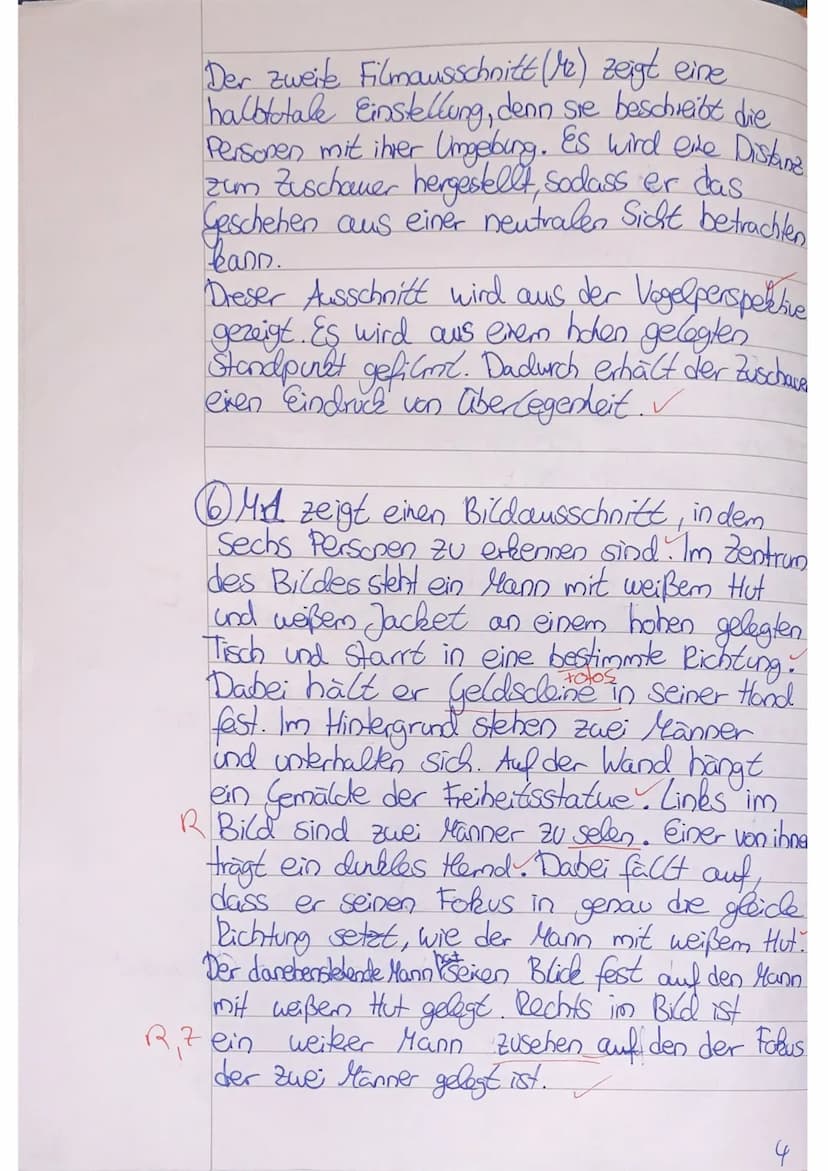 Der zweite Filmausschnitt (M2) zeigt eine
halbtotale Einstellung, denn sie beschreibt die
Personen mit ihrer Umgebung. Es wird eine Distanz
zum Zuschauer hergestellt, sodass er das
Geschehen aus einer neutralen Sicht betrachten
kann.
Dieser Ausschnitt wird aus der Vogelperspektive
gezeigt. Es wird aus einem hohen gelegten
Standpunkt gefilmt. Dadurch erhält der Zuschauer
einen Eindruck von Überlegenheit. ✓
⑥ M1 zeigt einen Bildausschnitt, in dem
sechs Personen zu erkennen sind. Im Zentrum
des Bildes steht ein Mann mit weißem Hut
und weißem Jacket an einem hohen gelegten
Tisch und starrt in eine bestimmte Richtung.
Fotos
Dabei hält er Geldscheine in seiner Hand
fest. Im Hintergrund stehen zwei Männer
und unterhalten sich. Auf der Wand hängt
ein Gemälde der Freiheitsstatue. Links im
R Bild sind zwei Männer zu sehen. Einer von ihne
trägt ein dunkles Hemd. Dabei fällt auf,
dass er seinen Fokus in genau die gleiche
Richtung setzt, wie der Mann mit weißem Hut.
Der danebenstehende Mann hat seinen Blick fest auf den Mann
mit weißen Hut gelegt. Rechts im Bild ist
R, Z ein weiterer Mann zusehen auf den der Fokus
der zwei Männer gelegt ist. ✓
4